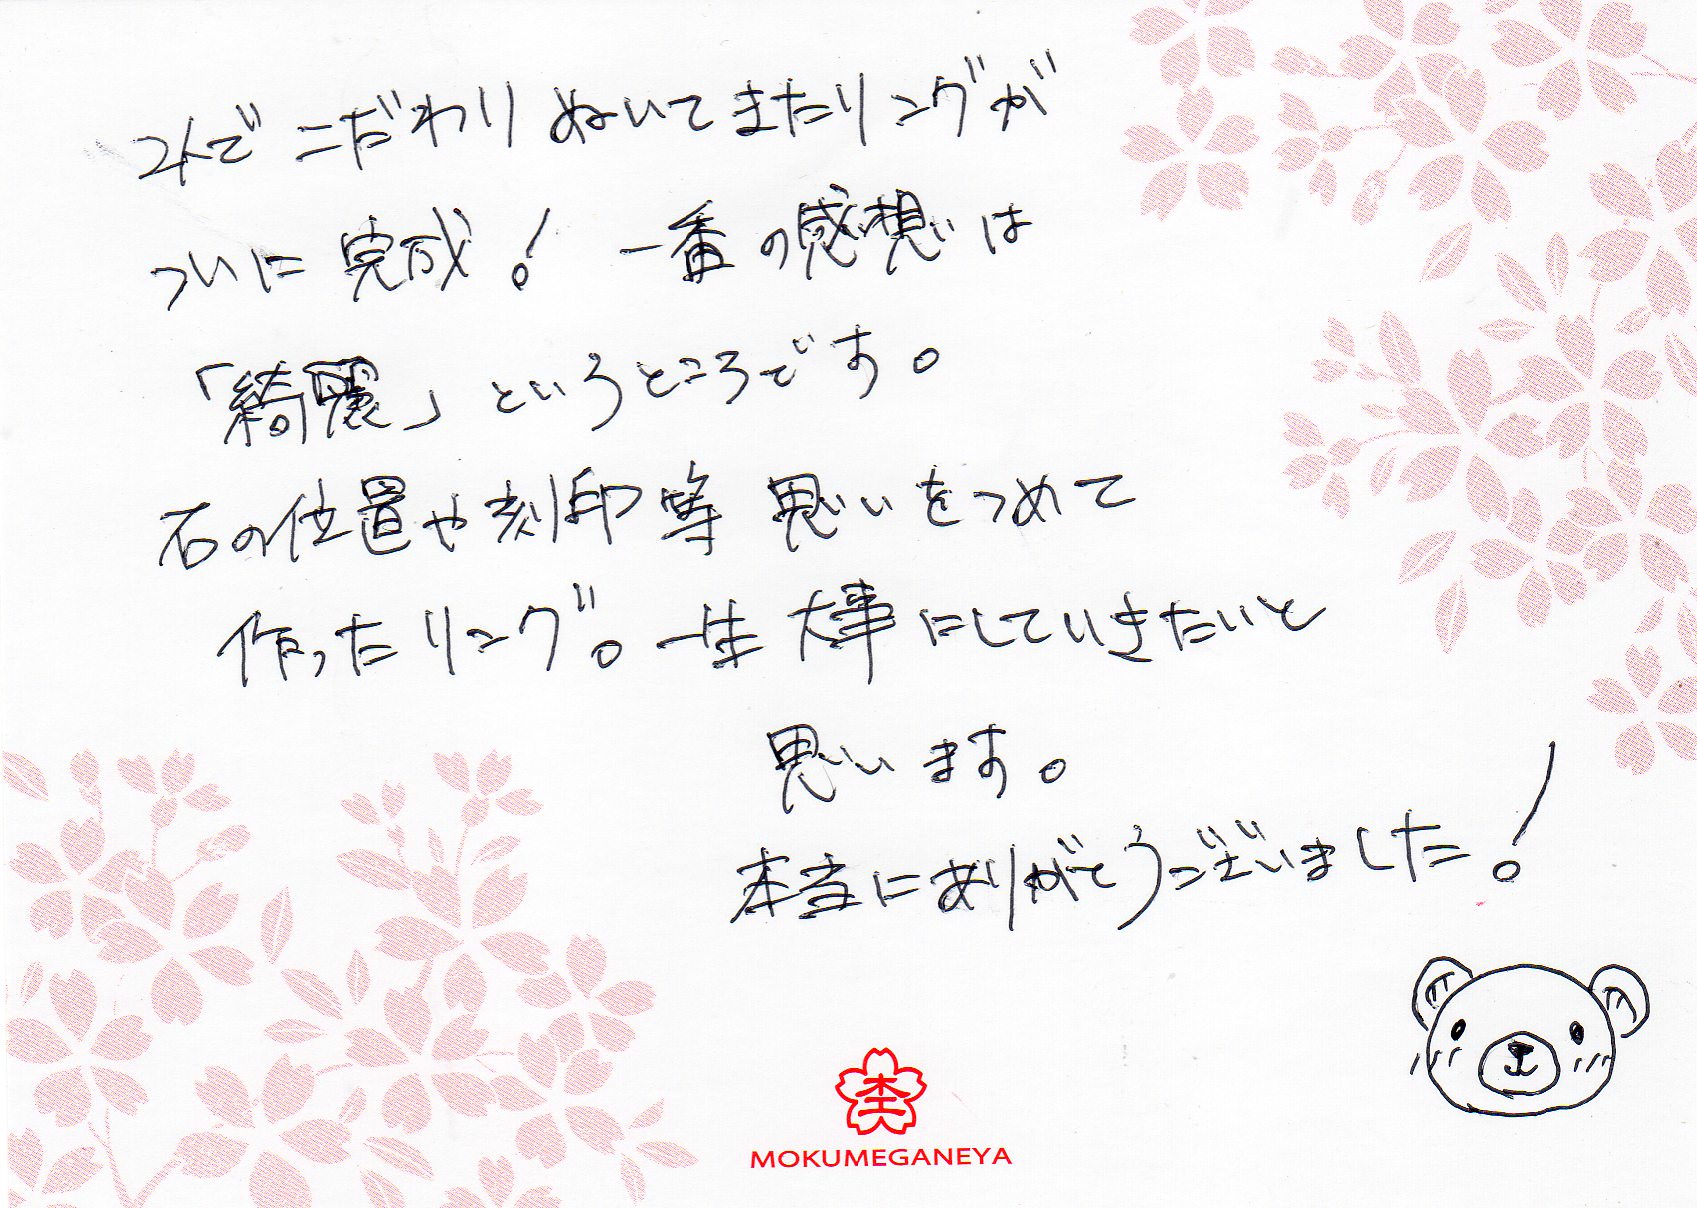 2人でこだわりぬいてきたリングが
ついに完成！ 一番の感想は
「綺麗」というところです。
石の位置や刻印等 思いをつめて
作ったリング。一生大事にしていきたいと
思います。
本当にありがとうございました！
MOKUMEGANEYA